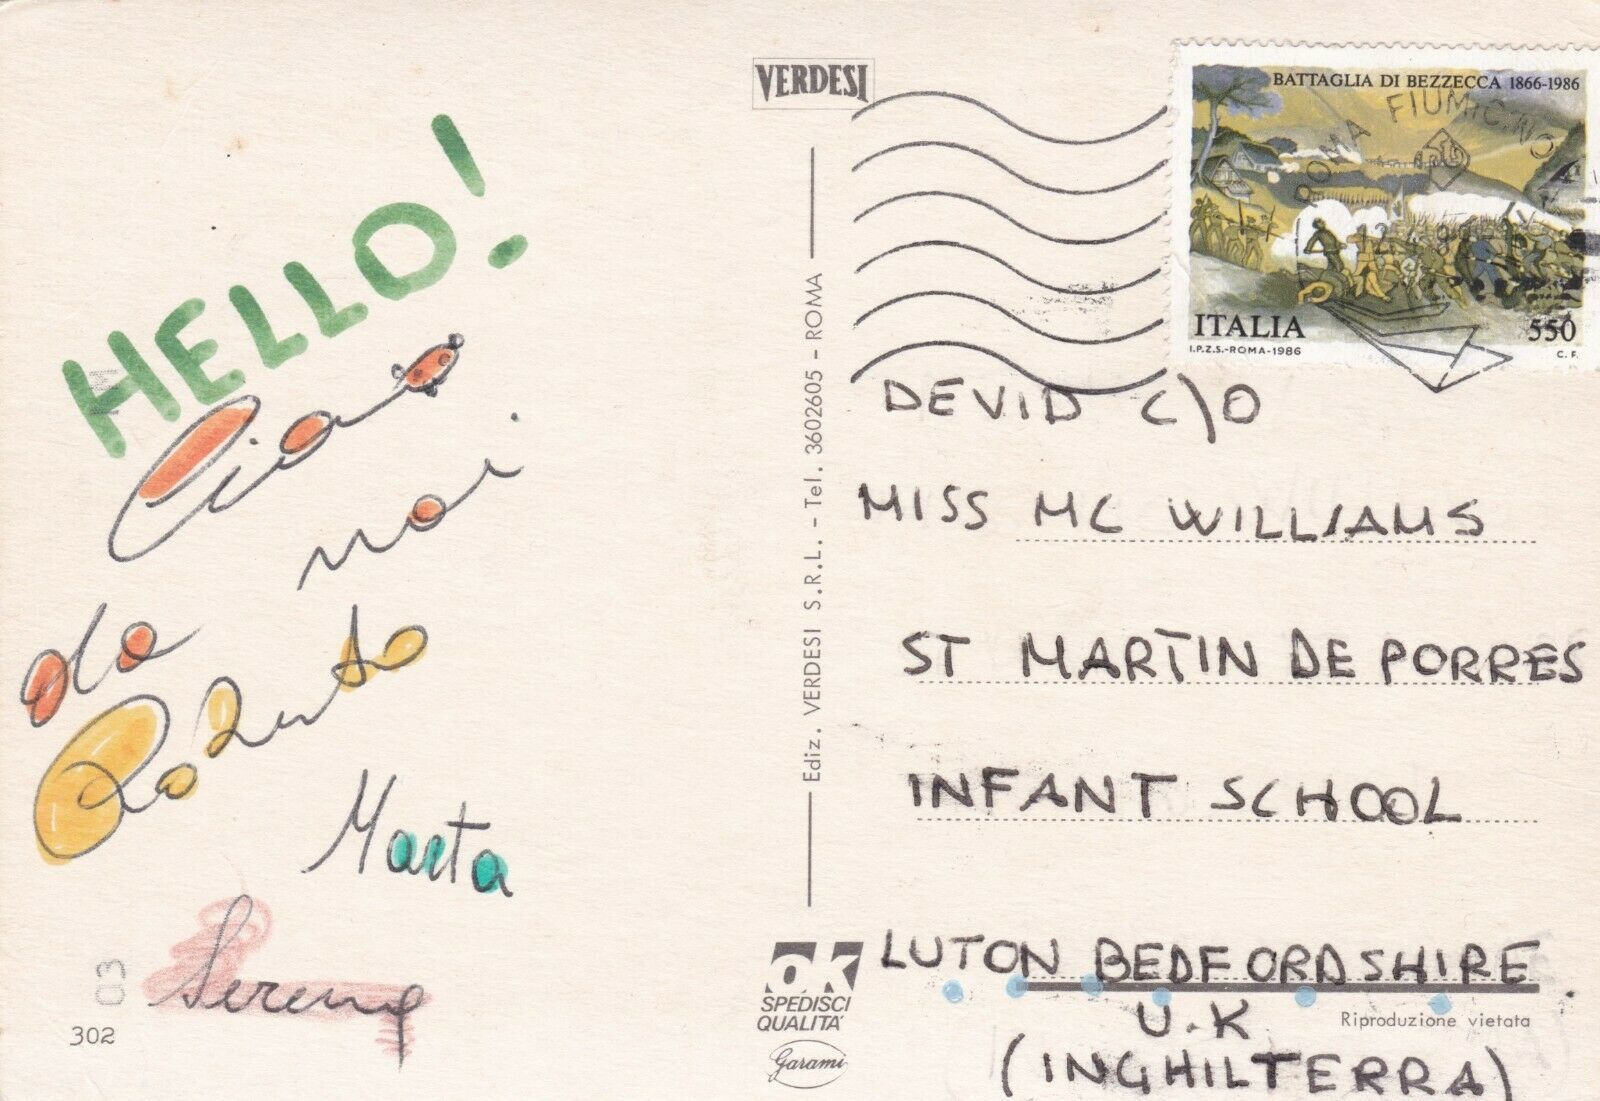 HELLO!
Ciao
noi
da
Roberto
Marta
Serena
302
03
VERDESI
Ediz. VERDESI S.R.L. - Tel. 3602605 - ROMA
OK
SPEDISCI
QUALITÀ
Garami
BATTAGLIA DI BEZZECCA 1866-1986
ROMA FIUMICINO
ITALIA
550
I.P.Z.S.-ROMA-1986
C. F.
DEVID C/O
MISS MC WILLIAMS
ST MARTIN DE PORRES
INFANT SCHOOL
LUTON BEDFORDSHIRE
U.K
Riproduzione vietata
(INGHILTERRA)